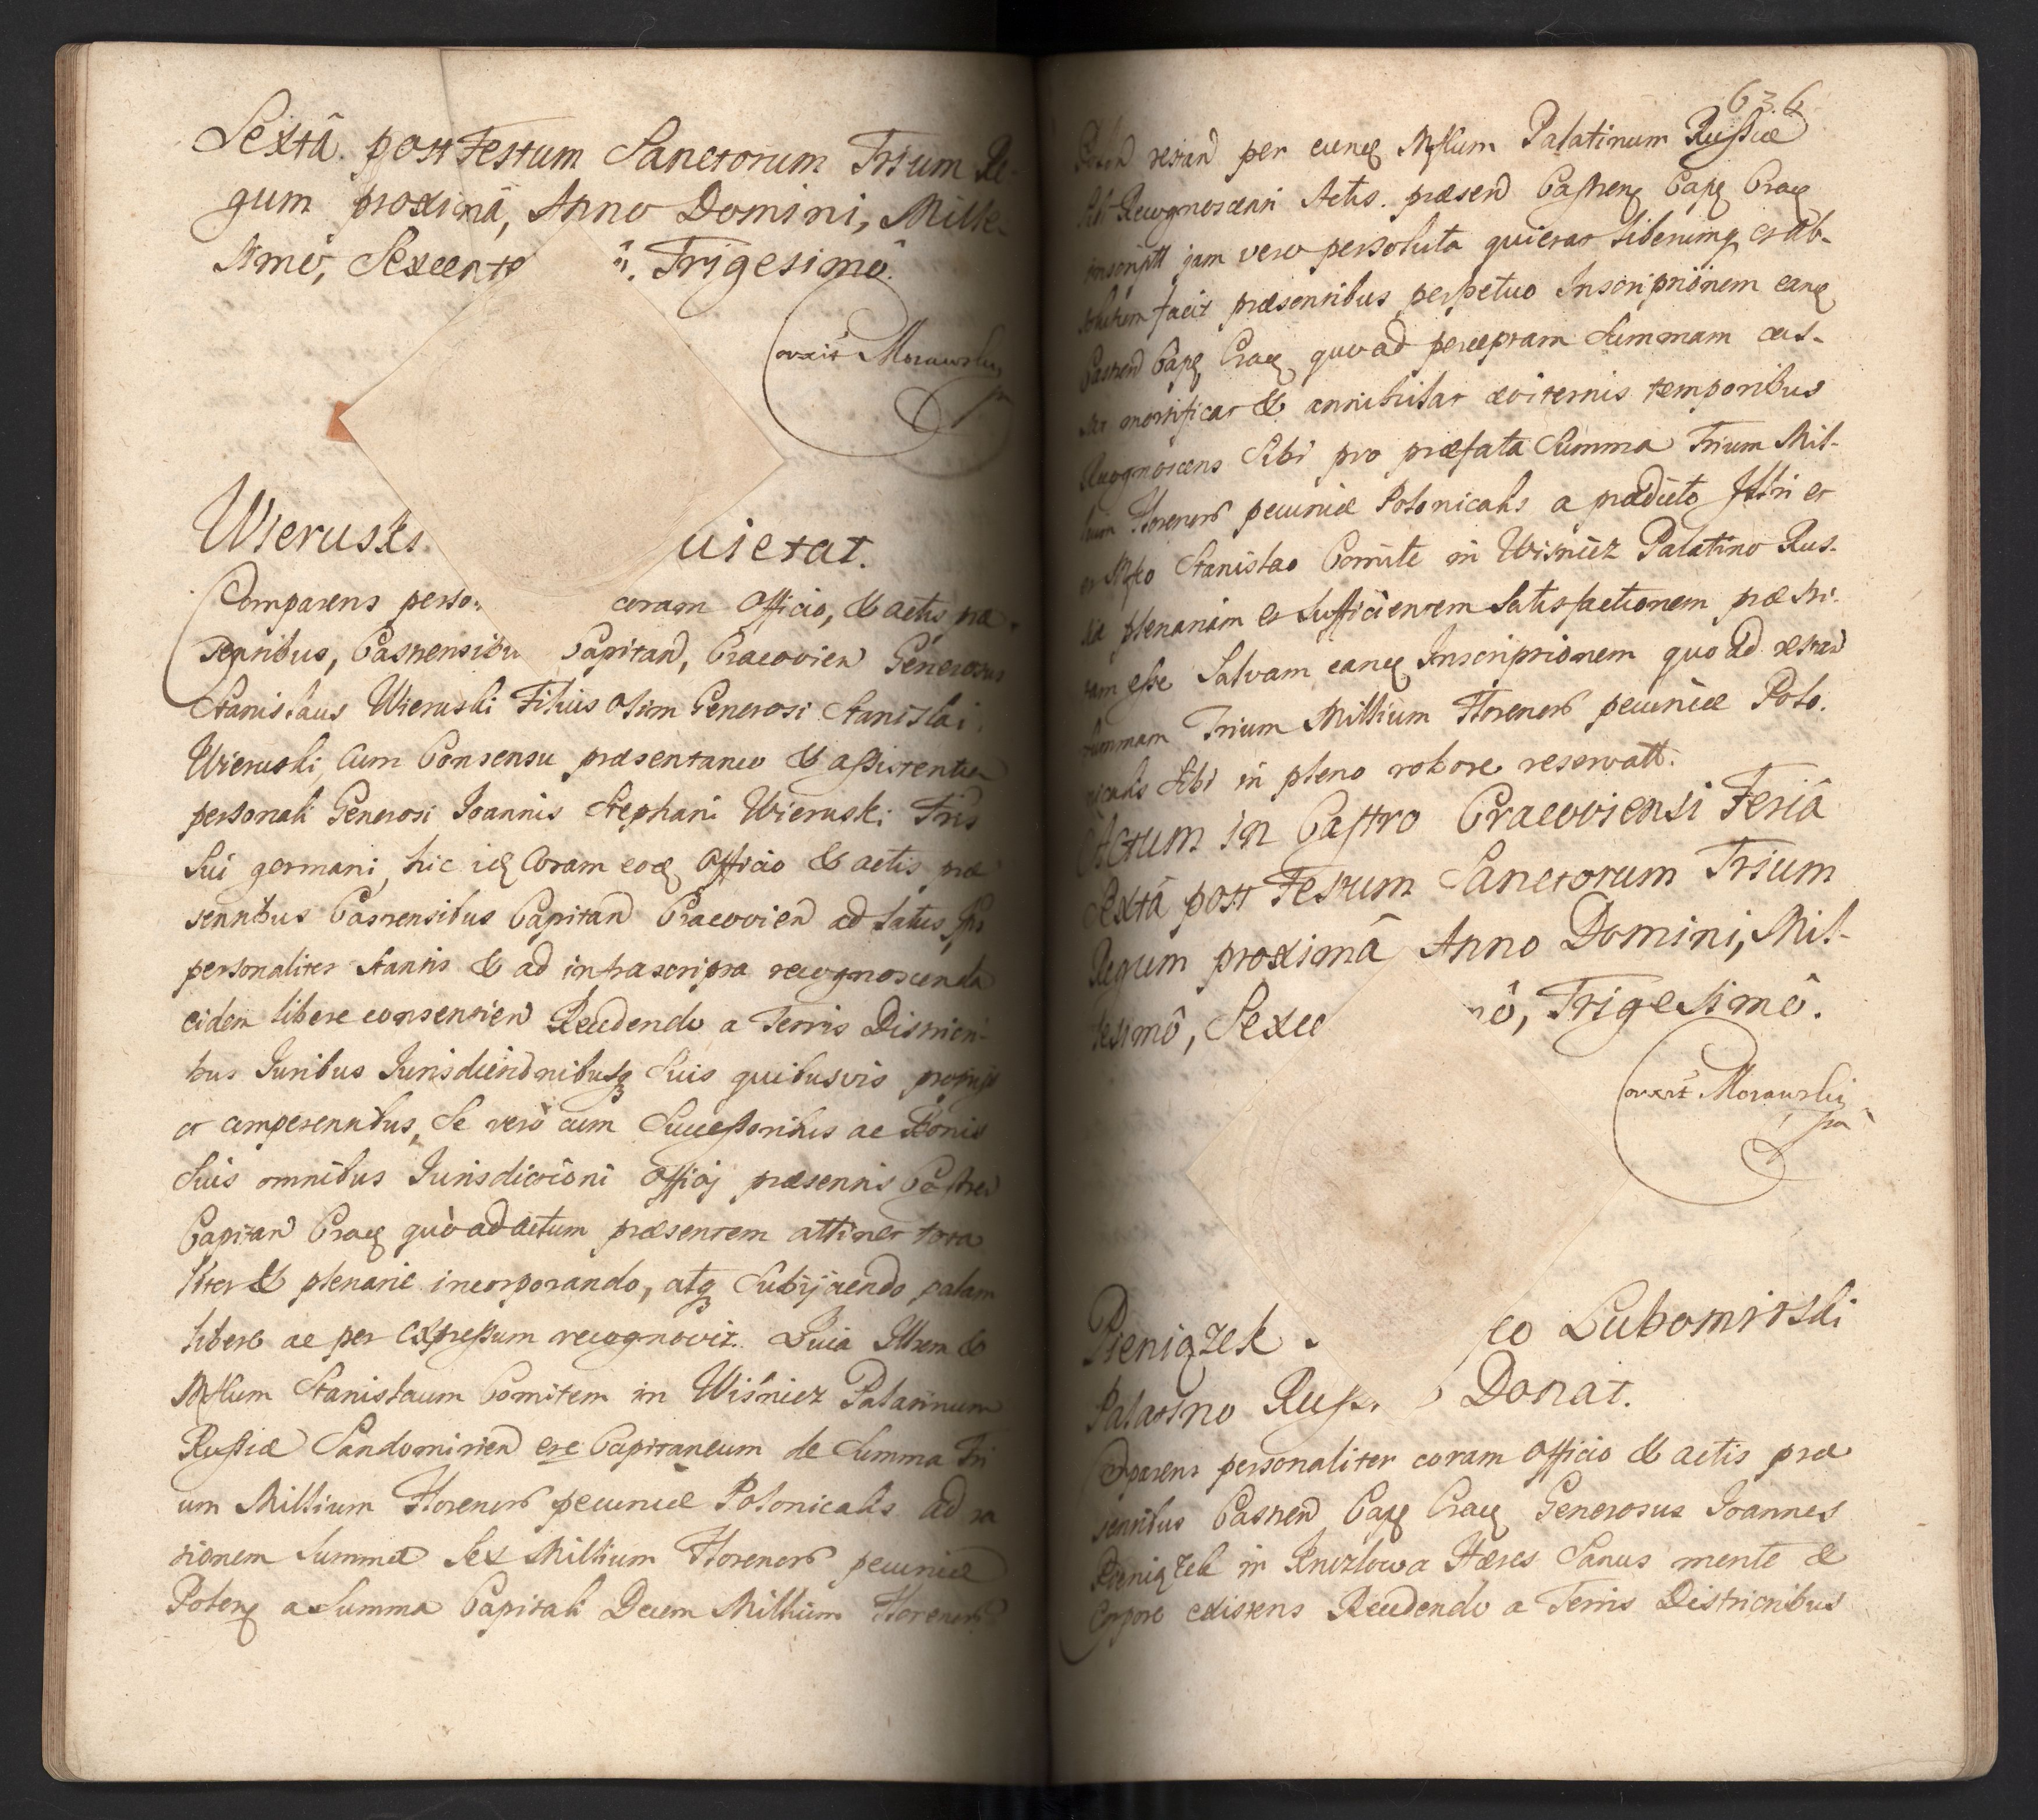 Sextâ post Festum Sanctorum Trium Re-
gum proximâ, Anno Domini, Mille-
simô, Sexcente ô, Trigesimô.
Morawski
Wieruski uietat.
Comparens perso coram Officio, & actis præ
sentibus, Castrensibu Capitan, Cracovien Generosus
Stanislaus Wieruski Filius olim Generosi Stanislai
Wieruski, Cum Consensu præsentaneo & assistentia
personali Generosi Joannis Stephani Wieruski Fris
Sui germani, hic coram Officio & actis præ
sentibus Castrensibus Capitan Cracovien ad latus
personaliter stantis & ad infrascripta recognoscenda
eidem libere consentien Recedendo a Terris Districti-
bus Juribus Jurisdictionibusq Suis quibusvis proprijs
et competentibus, Se verò cum Successoribus ac Bonis
Suis omnibus Jurisdictioni Officij præsentis Castren
Capitan Crac quò ad actum præsentem attinet tota
liter & plenarie incorporando, atq Subijciendo, palam
libere ac per expressum recognovit. Quia Illrem &
Mflcum Stanislaum Comitem in Wiśnicz Palatinum
Russiæ Sandomirien etc Capitaneum de Summa Tri
um Millium Florenor pecuniæ Polonicalis ad ra
tionem Summæ Sex Millium Florenor pecuniæ
Polon a Summa Capitali Decem Millium Florenor
636
Polon restan per eund Mflcum Palatinum Russiæ
Recognoscenti Actis præsen Castren Cap Crac
inscriptt jam vero persoluta quietat liberumq et ab-
solutum facit præsentibus perpetuo Inscriptionem eand
Castren Cap Crac quo ad perceptam Summam cas-
sat mortificat & annihilat æviternis temporibus
Recognoscens Sibi pro præfata Summa Trium Mil-
lium Florenor pecuniæ Polonicalis a prædicto Illri et
et Mfco Stanislao Comite in Wiśnicz Palatino Rus-
siæ plenariam et sufficientem Satisfactionem præsti-
tam esse Salvam eand Inscriptionem quo ad restan
Summam Trium Millium Florenor pecuniæ Polo-
nicalis Sibi in pleno robore reservatt.
Actum in Castro Cracoviensi Feriâ
Sextâ post Festum Sanctorum Trium
Regum proximâ Anno Domini, Mil-
lesimô, Sexce mô, Trigesimô.
Morawski
Pieniążek co Lubomirski
Palatino Russ Donat.
Comparens personaliter coram Officio & actis præ
sentibus Castren Cap Crac Generosus Joannes
Pieniążek in Kruzlowa Hæres Sanus mente &
Corpore existens Recedendo a Terris Districtibus